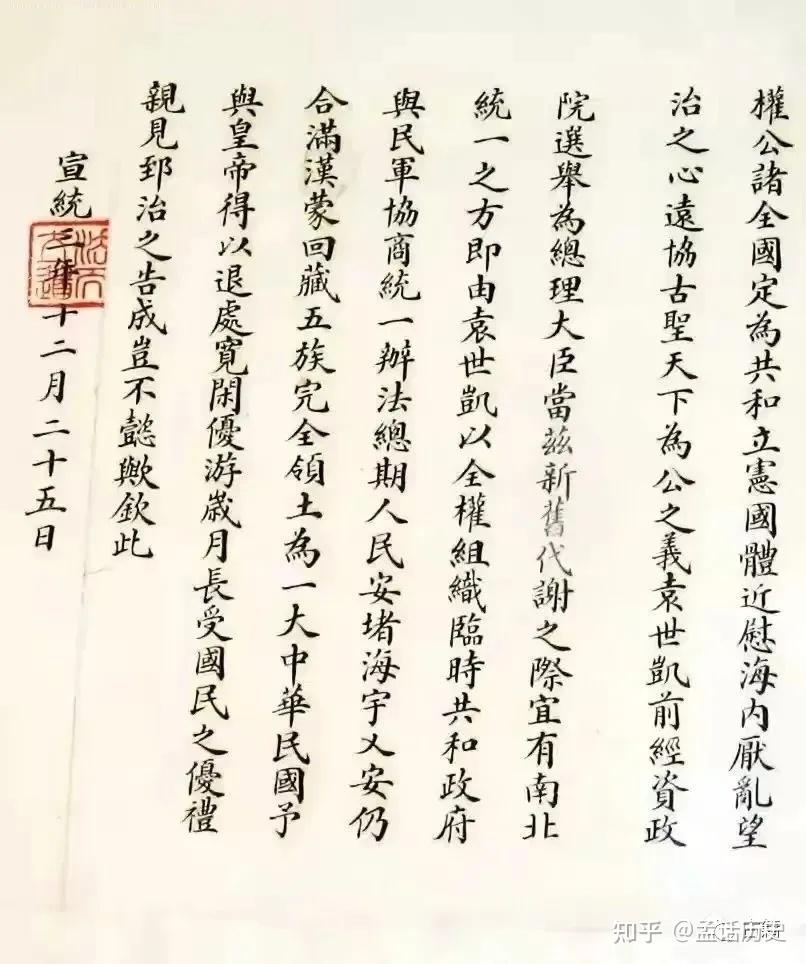 權公諸全國定為共和立憲國體近慰海内厭亂望
治之心遠協古聖天下為公之義袁世凱前經資政
院選舉為總理大臣當茲新舊代謝之際宜有南北
統一之方即由袁世凱以全權組織臨時共和政府
與民軍協商統一辦法總期人民安堵海宇乂安仍
合滿漢蒙回藏五族完全領土為一大中華民國予
與皇帝得以退處寬閑優游歲月長受國民之優禮
親見郅治之告成豈不懿歟欽此
宣統三年十二月二十五日
法天立道
知乎 @孟话历史